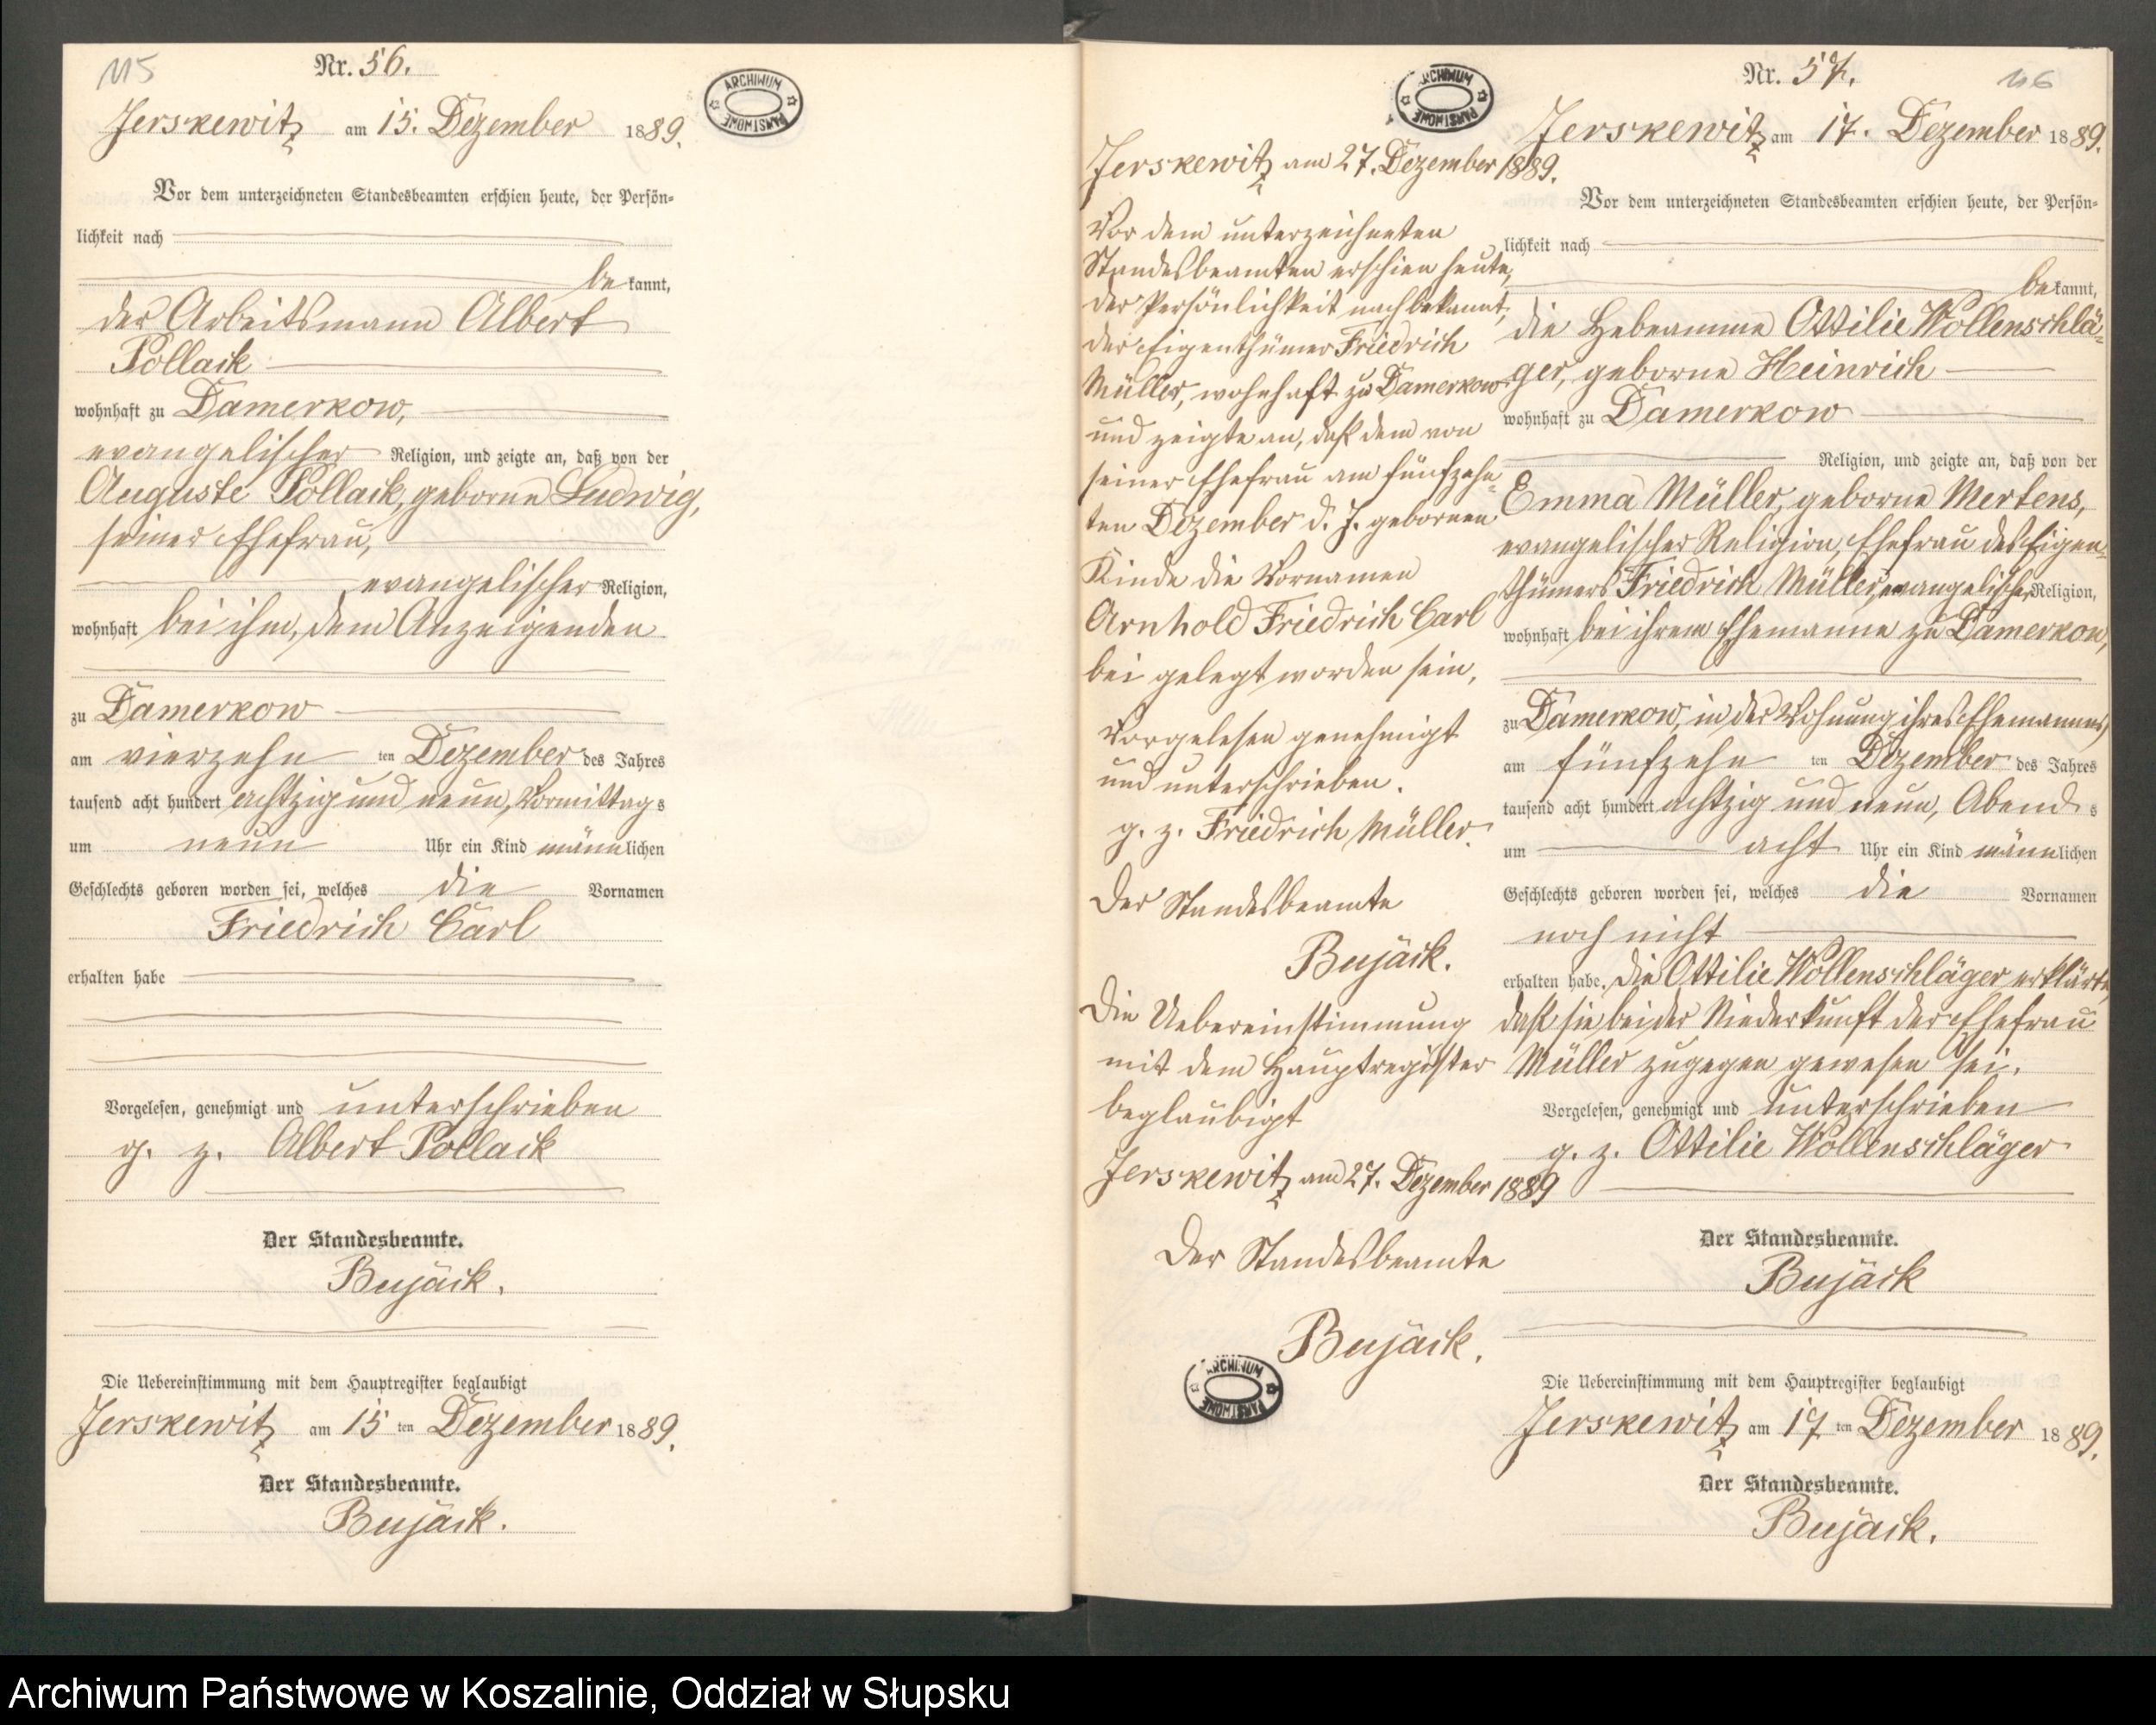 115
Nr. 56.
Jerskewitz am 15. Dezember 1889.
Vor dem unterzeichneten Standesbeamten erschien heute, der Persön-
lichkeit nach
bekannt,
der Arbeitsmann Albert
Pollack
wohnhaft zu Damerkow,
evangelischer Religion, und zeigte an, daß von der
Auguste Pollack, geborne Ludwig,
seiner Ehefrau,
evangelischer Religion,
wohnhaft bei ihm, dem Anzeigenden
zu Damerkow
am vierzehn ten Dezember des Jahres
tausend acht hundert achtzig und neun, Vormittags
um neun Uhr ein Kind männlichen
Geschlechts geboren worden sei, welches die Vornamen
Friedrich Carl
erhalten habe
Vorgelesen, genehmigt und unterschrieben
g. z. Albert Pollack
Der Standesbeamte.
Bujack.
Die Uebereinstimmung mit dem Hauptregister beglaubigt
Jerskewitz am 15 ten Dezember 1889.
Der Standesbeamte.
Bujack.
ARCHIWUM
PAŃSTWOWE
ARCHIWUM
PAŃSTWOWE
Jerskewitz am 27. Dezember 1889.
Vor dem unterzeichneten
Standesbeamten erschien heute,
der Persönlichkeit nach bekannt,
der Eigenthümer Friedrich
Müller, wohnhaft zu Damerkow
und zeigte an, daß dem von
seiner Ehefrau am fünfzehn-
ten Dezember d. J. gebornen
Kinde die Vornamen
Arnhold Friedrich Carl
bei gelegt worden sein.
Vorgelesen genehmigt
und unterschrieben.
g. z. Friedrich Müller.
Der Standesbeamte
Bujack.
Die Uebereinstimmung
mit dem Hauptregister
beglaubigt
Jerskewitz am 27. Dezember 1889
Der Standesbeamte
Bujack.
ARCHIWUM
PAŃSTWOWE
Nr. 57.
116
Jerskewitz am 17. Dezember 1889.
Vor dem unterzeichneten Standesbeamten erschien heute, der Persön-
lichkeit nach
bekannt,
die Hebeamme Ottilie Wollenschlä-
ger, geborne Heinrich
wohnhaft zu Damerkow
Religion, und zeigte an, daß von der
Emma Müller, geborne Mertens,
evangelischer Religion, Ehefrau des Eigen-
thümers Friedrich Müller, evangelischer Religion,
wohnhaft bei ihrem Ehemanne zu Damerkow,
zu Damerkow, in der Wohnung ihres Ehemannes,
am fünfzehn ten Dezember des Jahres
tausend acht hundert achtzig und neun, Abends
um acht Uhr ein Kind männlichen
Geschlechts geboren worden sei, welches die Vornamen
noch nicht
erhalten habe. Die Ottilie Wollenschläger erklärte,
daß sie bei der Niederkunft der Ehefrau
Müller zugegen gewesen sei.
Vorgelesen, genehmigt und unterschrieben
g. z. Ottilie Wollenschläger
Der Standesbeamte.
Bujack
Die Uebereinstimmung mit dem Hauptregister beglaubigt
Jerskewitz am 17 ten Dezember 1889.
Der Standesbeamte.
Bujack.
Archiwum Państwowe w Koszalinie, Oddział w Słupsku